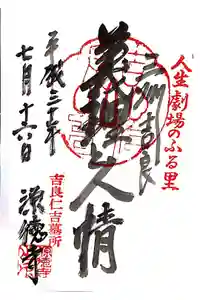 人生劇場のふる里
三州吉良
義理と人情
吉良仁吉墓所
源徳寺
平成三十年
七月十六日